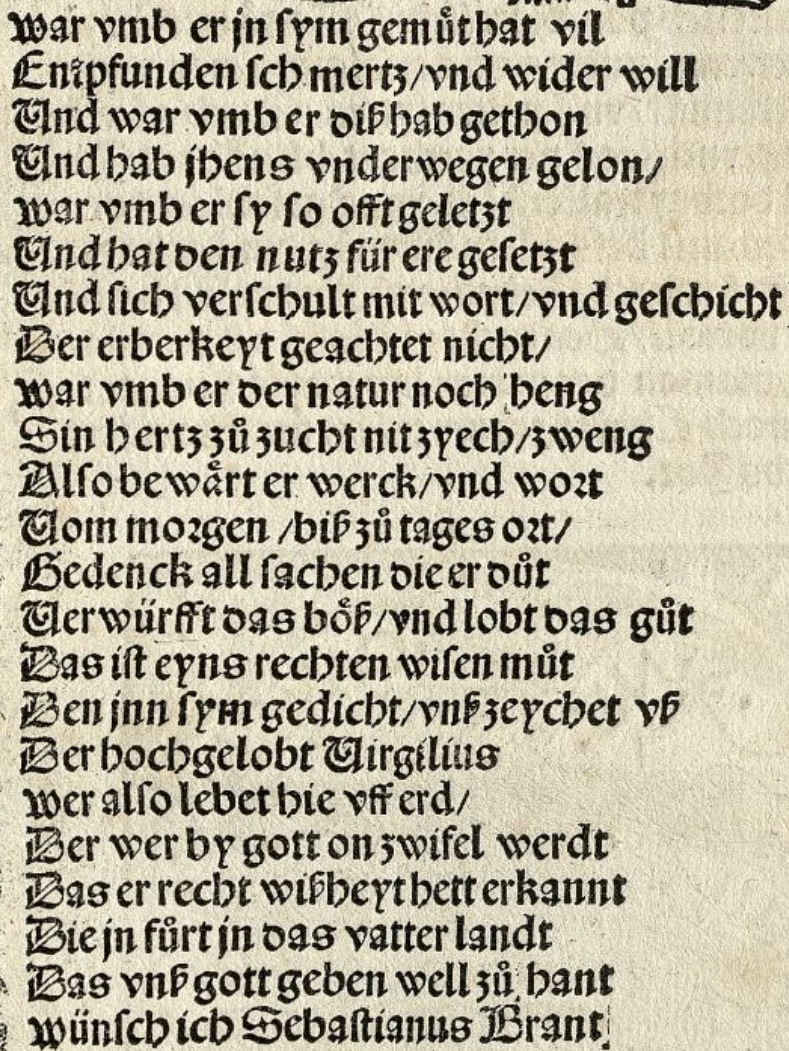 war vmb er jn ſym gemuͤt hat vil
Entpfunden ſchmertz/vnd wider will
Vnd war vmb er diß hab gethon
Vnd hab jhens vnderwegen gelon/
war vmb er ſy ſo offt geletzt
Vnd hat den nutz für ere geſetzt
Vnd ſich verſchult mit wort/vnd geſchicht
Der erberkeyt geachtet nicht/
war vmb er der natur noch heng
Sin hertz zuͦ zucht nit zyech/zweng
Alſo bewaͤrt er werck/vnd wort
Vom morgen /biß zuͦ tages ort/
Gedenck all ſachen die er duͦt
Verwürfft das boͤß/vnd lobt das guͦt
Das iſt eyns rechten wiſen muͦt
Den jnn ſym gedicht/vnß zeychet vß
Der hochgelobt Virgilius
wer alſo lebet hie vff erd/
Der wer by gott on zwifel werdt
Das er recht wißheyt hett erkannt
Die jn fuͤrt jn das vatter landt
Das vnß gott geben well zuͦ hant
wünſch ich Sebaſtianus Brant